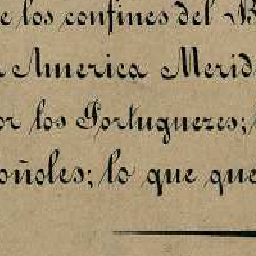 e los confines del B
a America Merid
or los Portuguezes;
oñoles; lo que que